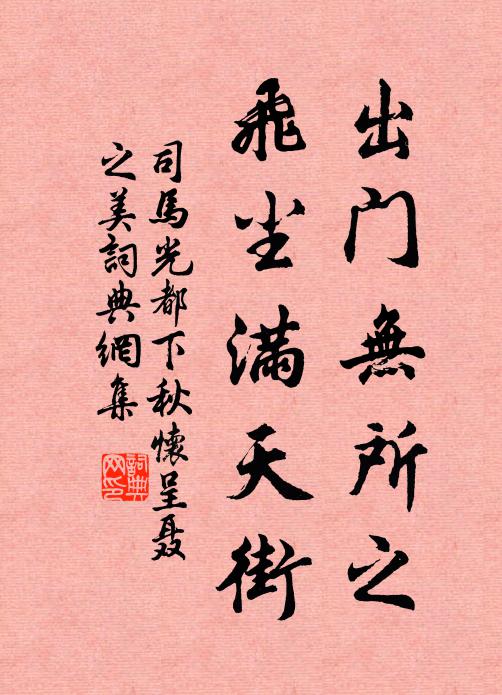 出门無所之
飛尘滿天街
司馬光都下秋懷呈聂
之美詞典網集
詞典网印